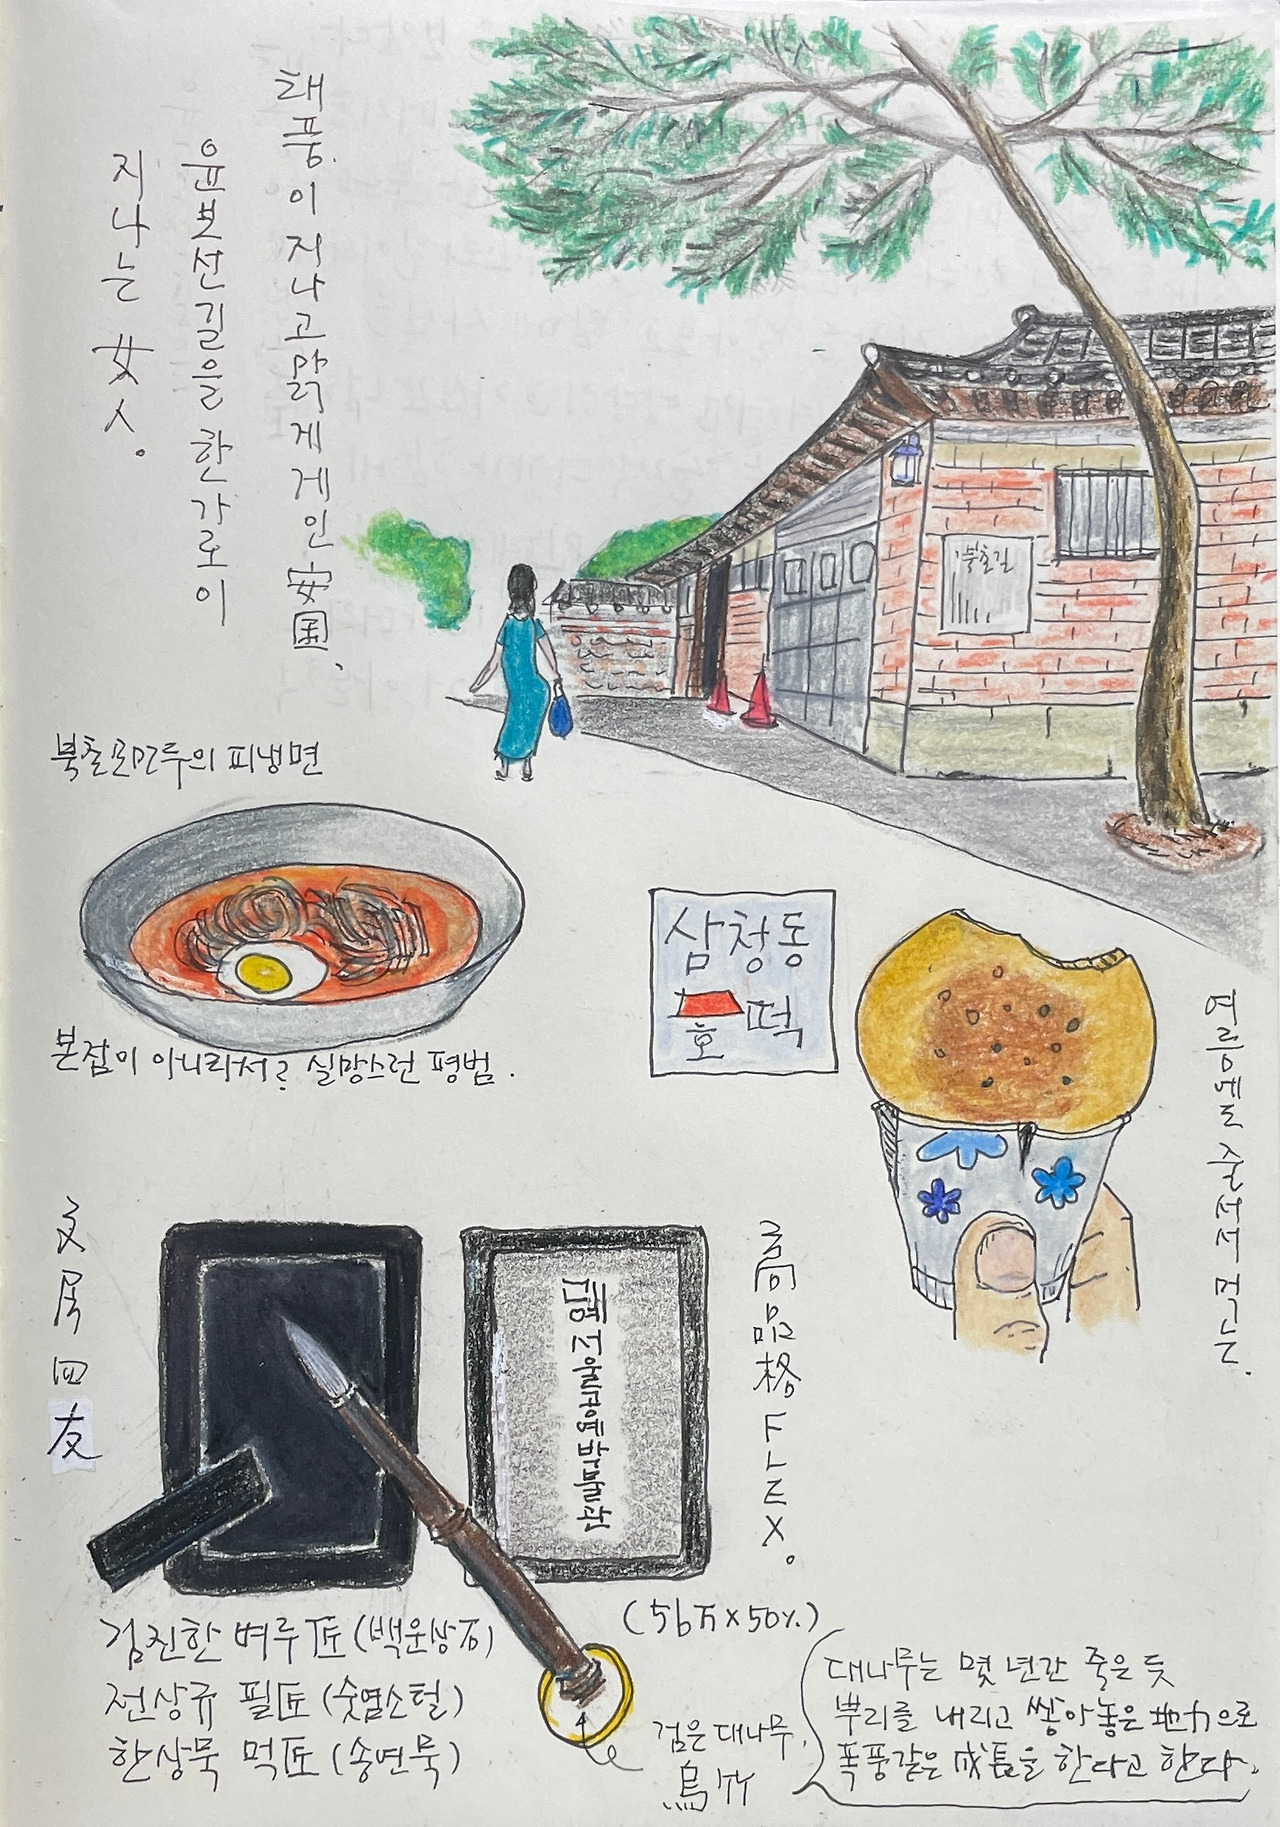 태풍이 지나고 맑게 게인 安国、
윤보선길을 한가로이
지나는 女人。
북촌길
북촌손만두의 피냉면
본점이 아니라서? 실망스런 평범.
삼청동
호떡
여름에도 줄서서 먹는.
文房四友
서울공예박물관
高品格 FLEX。
(56万×50%)
김진한 벼루匠 (백운상石)
전상규 필匠 (숫염소털)
한상묵 먹匠 (송연묵)
검은 대나무,
烏竹
대나무는 몇 년간 죽은 듯
뿌리를 내리고 쌓아놓은 地力으로
폭풍같은 成長을 한다고 한다.